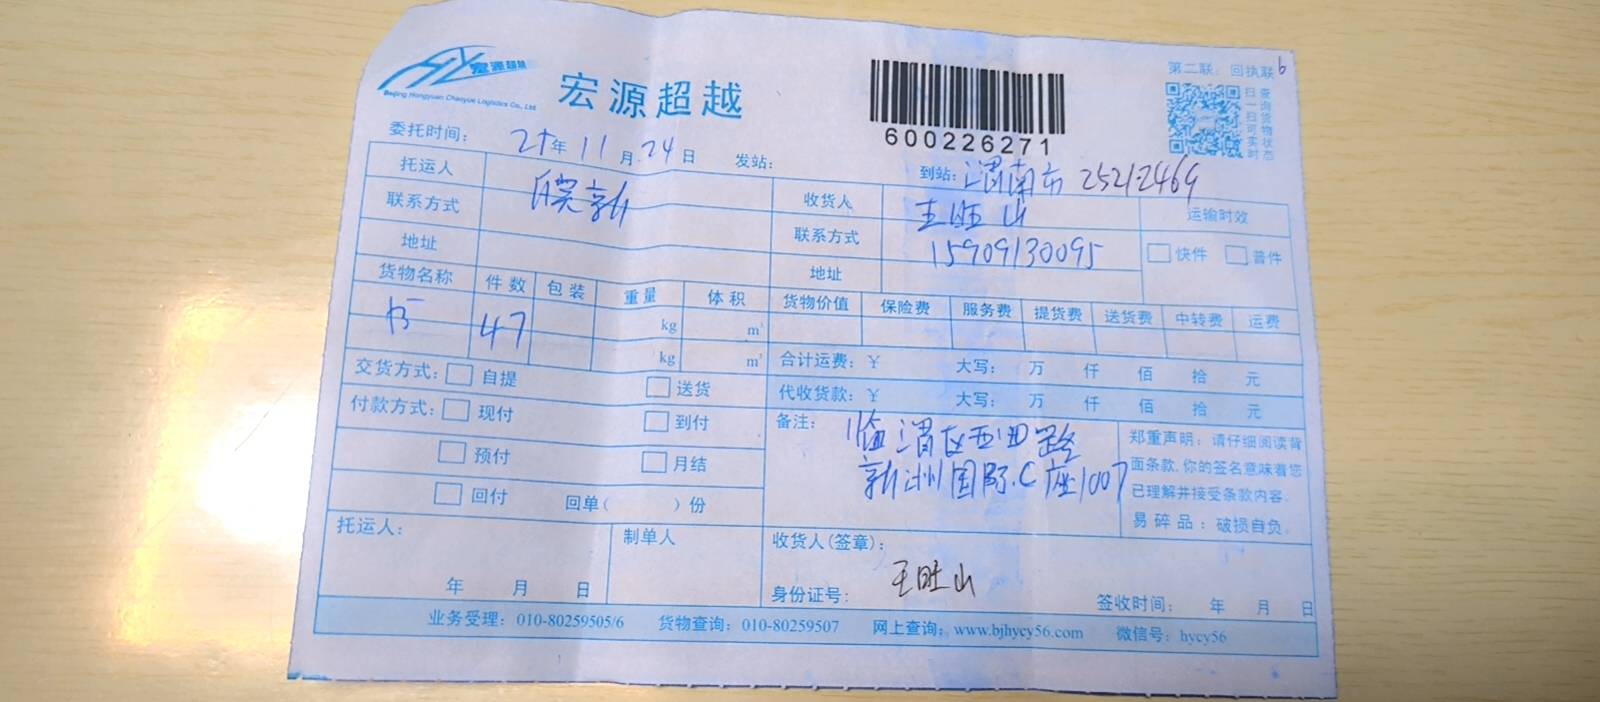 宏源超越
Beijing Hongyuan Chaoyue Logistics Co., Ltd
宏源超越
600226271
第二联：回执联 6
扫一扫可实时
查询货物状态
委托时间： 21年 11月 24日 发站： 到站：渭南市 25212469
托运人 皖新 收货人 王旺山 运输时效
联系方式 联系方式 15909130095 快件 普件
地址 地址
货物名称 件数 包装 重量 体积 货物价值 保险费 服务费 提货费 送货费 中转费 运费
书 47 kg m³
kg m³ 合计运费：¥ 大写： 万 仟 佰 拾 元
交货方式： 自提 送货 代收货款：¥ 大写： 万 仟 佰 拾 元
付款方式： 现付 到付 备注：临渭区西四路
新洲国际.C座1007
预付 月结
回付 回单（ ）份
郑重声明：请仔细阅读背
面条款,你的签名意味着您
已理解并接受条款内容.
易碎品：破损自负.
托运人： 制单人 收货人(签章)：
王旺山
年 月 日 身份证号： 签收时间： 年 月 日
业务受理：010-80259505/6 货物查询：010-80259507 网上查询：www.bjhycy56.com 微信号：hycy56